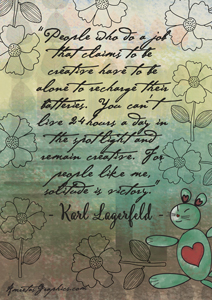 "People who do a job
that claims to be
creative have to be
alone to recharge their
batteries. You can't
live 24 hours a day in
the spotlight and
remain creative. For
people like me,
solitude is victory."
- Karl Lagerfeld -